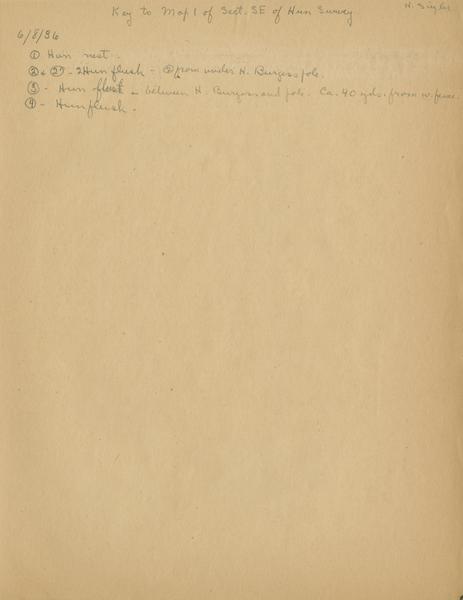 H. Sigler
Key to Map 1 of Sect. SE of Hun Survey.
6/8/36
① Hun nest.
② & - 2 Hun flush - ② from under H. Burgess pole.
③ - Hun flush - between H. Burgess and pole. Ca. 40 yds. from w. fence.
④ - Hun flush.